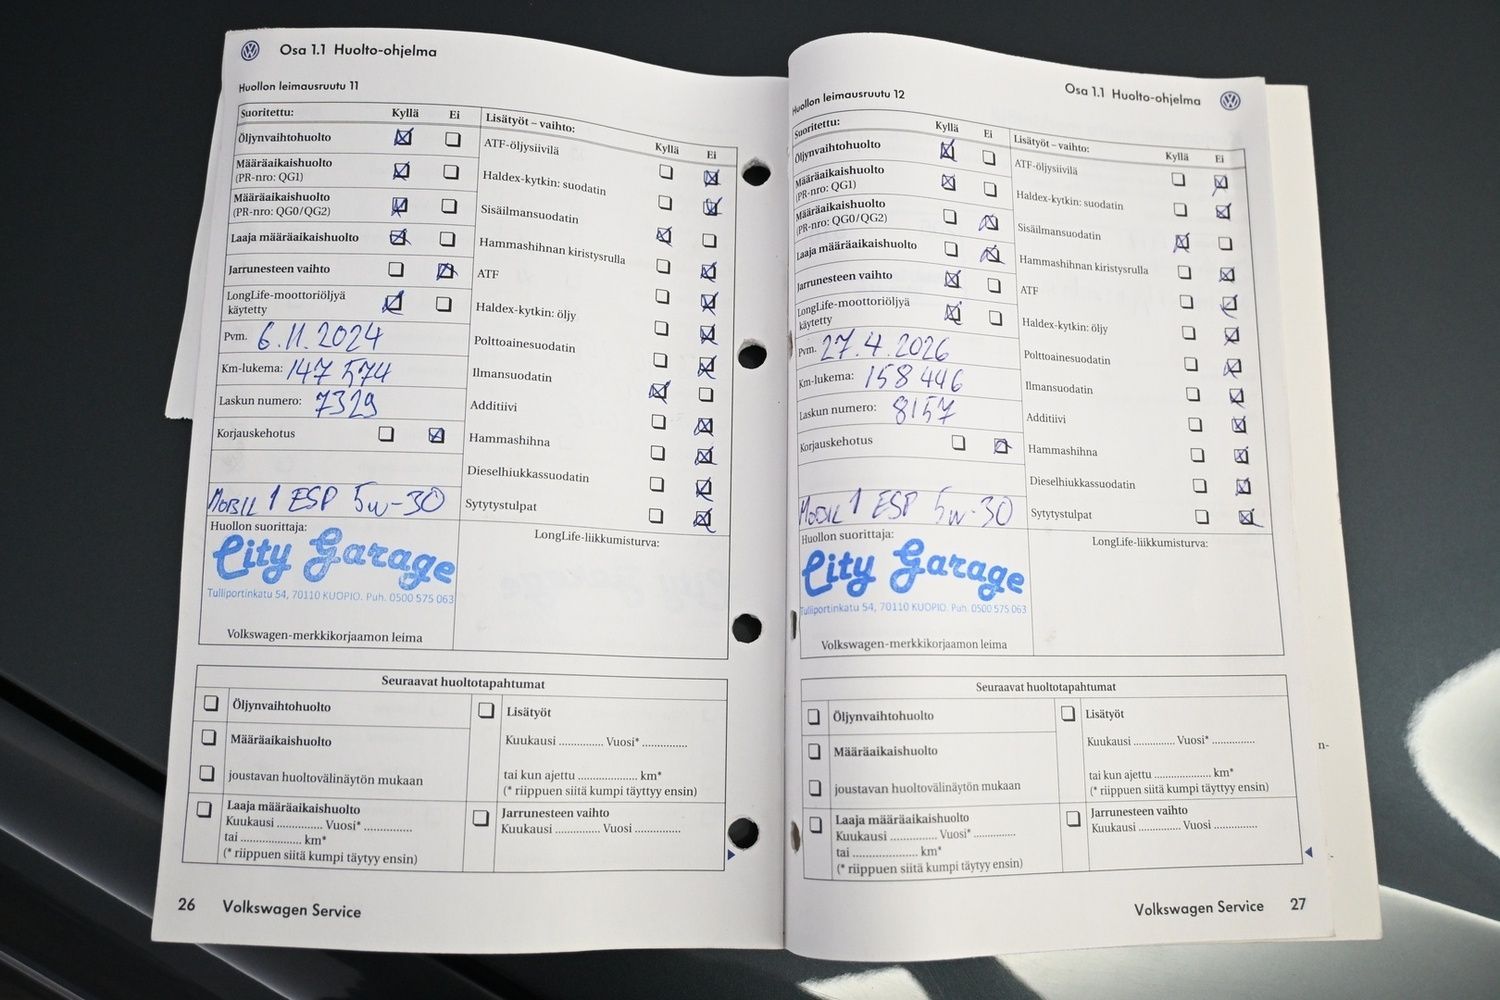 Osa 1.1 Huolto-ohjelma
Huollon leimausruutu 11
Suoritettu: Kyllä Ei
Öljynvaihtohuolto
Määräaikaishuolto
(PR-nro: QG1)
Määräaikaishuolto
(PR-nro: QG0/QG2)
Laaja määräaikaishuolto
Jarrunesteen vaihto
LongLife-moottoriöljyä
käytetty
Pvm. 6.11.2024
Km-lukema: 147 574
Laskun numero: 7329
Korjauskehotus
MOBIL 1 ESP 5w-30
Huollon suorittaja:
City Garage
Tulliportinkatu 54, 70110 KUOPIO. Puh. 0500 575 063
Volkswagen-merkkikorjaamon leima
Lisätyöt – vaihto:
Kyllä Ei
ATF-öljysiivilä
Haldex-kytkin: suodatin
Sisäilmansuodatin
Hammashihnan kiristysrulla
ATF
Haldex-kytkin: öljy
Polttoainesuodatin
Ilmansuodatin
Additiivi
Hammashihna
Dieselhiukkassuodatin
Sytytystulpat
LongLife-liikkumisturva:
Seuraavat huoltotapahtumat
Öljynvaihtohuolto
Määräaikaishuolto
joustavan huoltovälinäytön mukaan
Laaja määräaikaishuolto
Kuukausi .............. Vuosi* ..............
tai .................... km*
(* riippuen siitä kumpi täytyy ensin)
Lisätyöt
Kuukausi .............. Vuosi* ..............
tai kun ajettu .................... km*
(* riippuen siitä kumpi täyttyy ensin)
Jarrunesteen vaihto
Kuukausi .............. Vuosi ..............
26 Volkswagen Service
Osa 1.1 Huolto-ohjelma
Huollon leimausruutu 12
Suoritettu: Kyllä Ei
Öljynvaihtohuolto
Määräaikaishuolto
(PR-nro: QG1)
Määräaikaishuolto
(PR-nro: QG0/QG2)
Laaja määräaikaishuolto
Jarrunesteen vaihto
LongLife-moottoriöljyä
käytetty
Pvm. 27.4.2026
Km-lukema: 158 446
Laskun numero: 8157
Korjauskehotus
MOBIL 1 ESP 5w-30
Huollon suorittaja:
City Garage
Tulliportinkatu 54, 70110 KUOPIO. Puh. 0500 575 063
Volkswagen-merkkikorjaamon leima
Lisätyöt – vaihto:
Kyllä Ei
ATF-öljysiivilä
Haldex-kytkin: suodatin
Sisäilmansuodatin
Hammashihnan kiristysrulla
ATF
Haldex-kytkin: öljy
Polttoainesuodatin
Ilmansuodatin
Additiivi
Hammashihna
Dieselhiukkassuodatin
Sytytystulpat
LongLife-liikkumisturva:
Seuraavat huoltotapahtumat
Öljynvaihtohuolto
Määräaikaishuolto
joustavan huoltovälinäytön mukaan
Laaja määräaikaishuolto
Kuukausi .............. Vuosi* ..............
tai .................... km*
(* riippuen siitä kumpi täytyy ensin)
Lisätyöt
Kuukausi .............. Vuosi* ..............
tai kun ajettu .................... km*
(* riippuen siitä kumpi täyttyy ensin)
Jarrunesteen vaihto
Kuukausi .............. Vuosi ..............
Volkswagen Service 27
n-